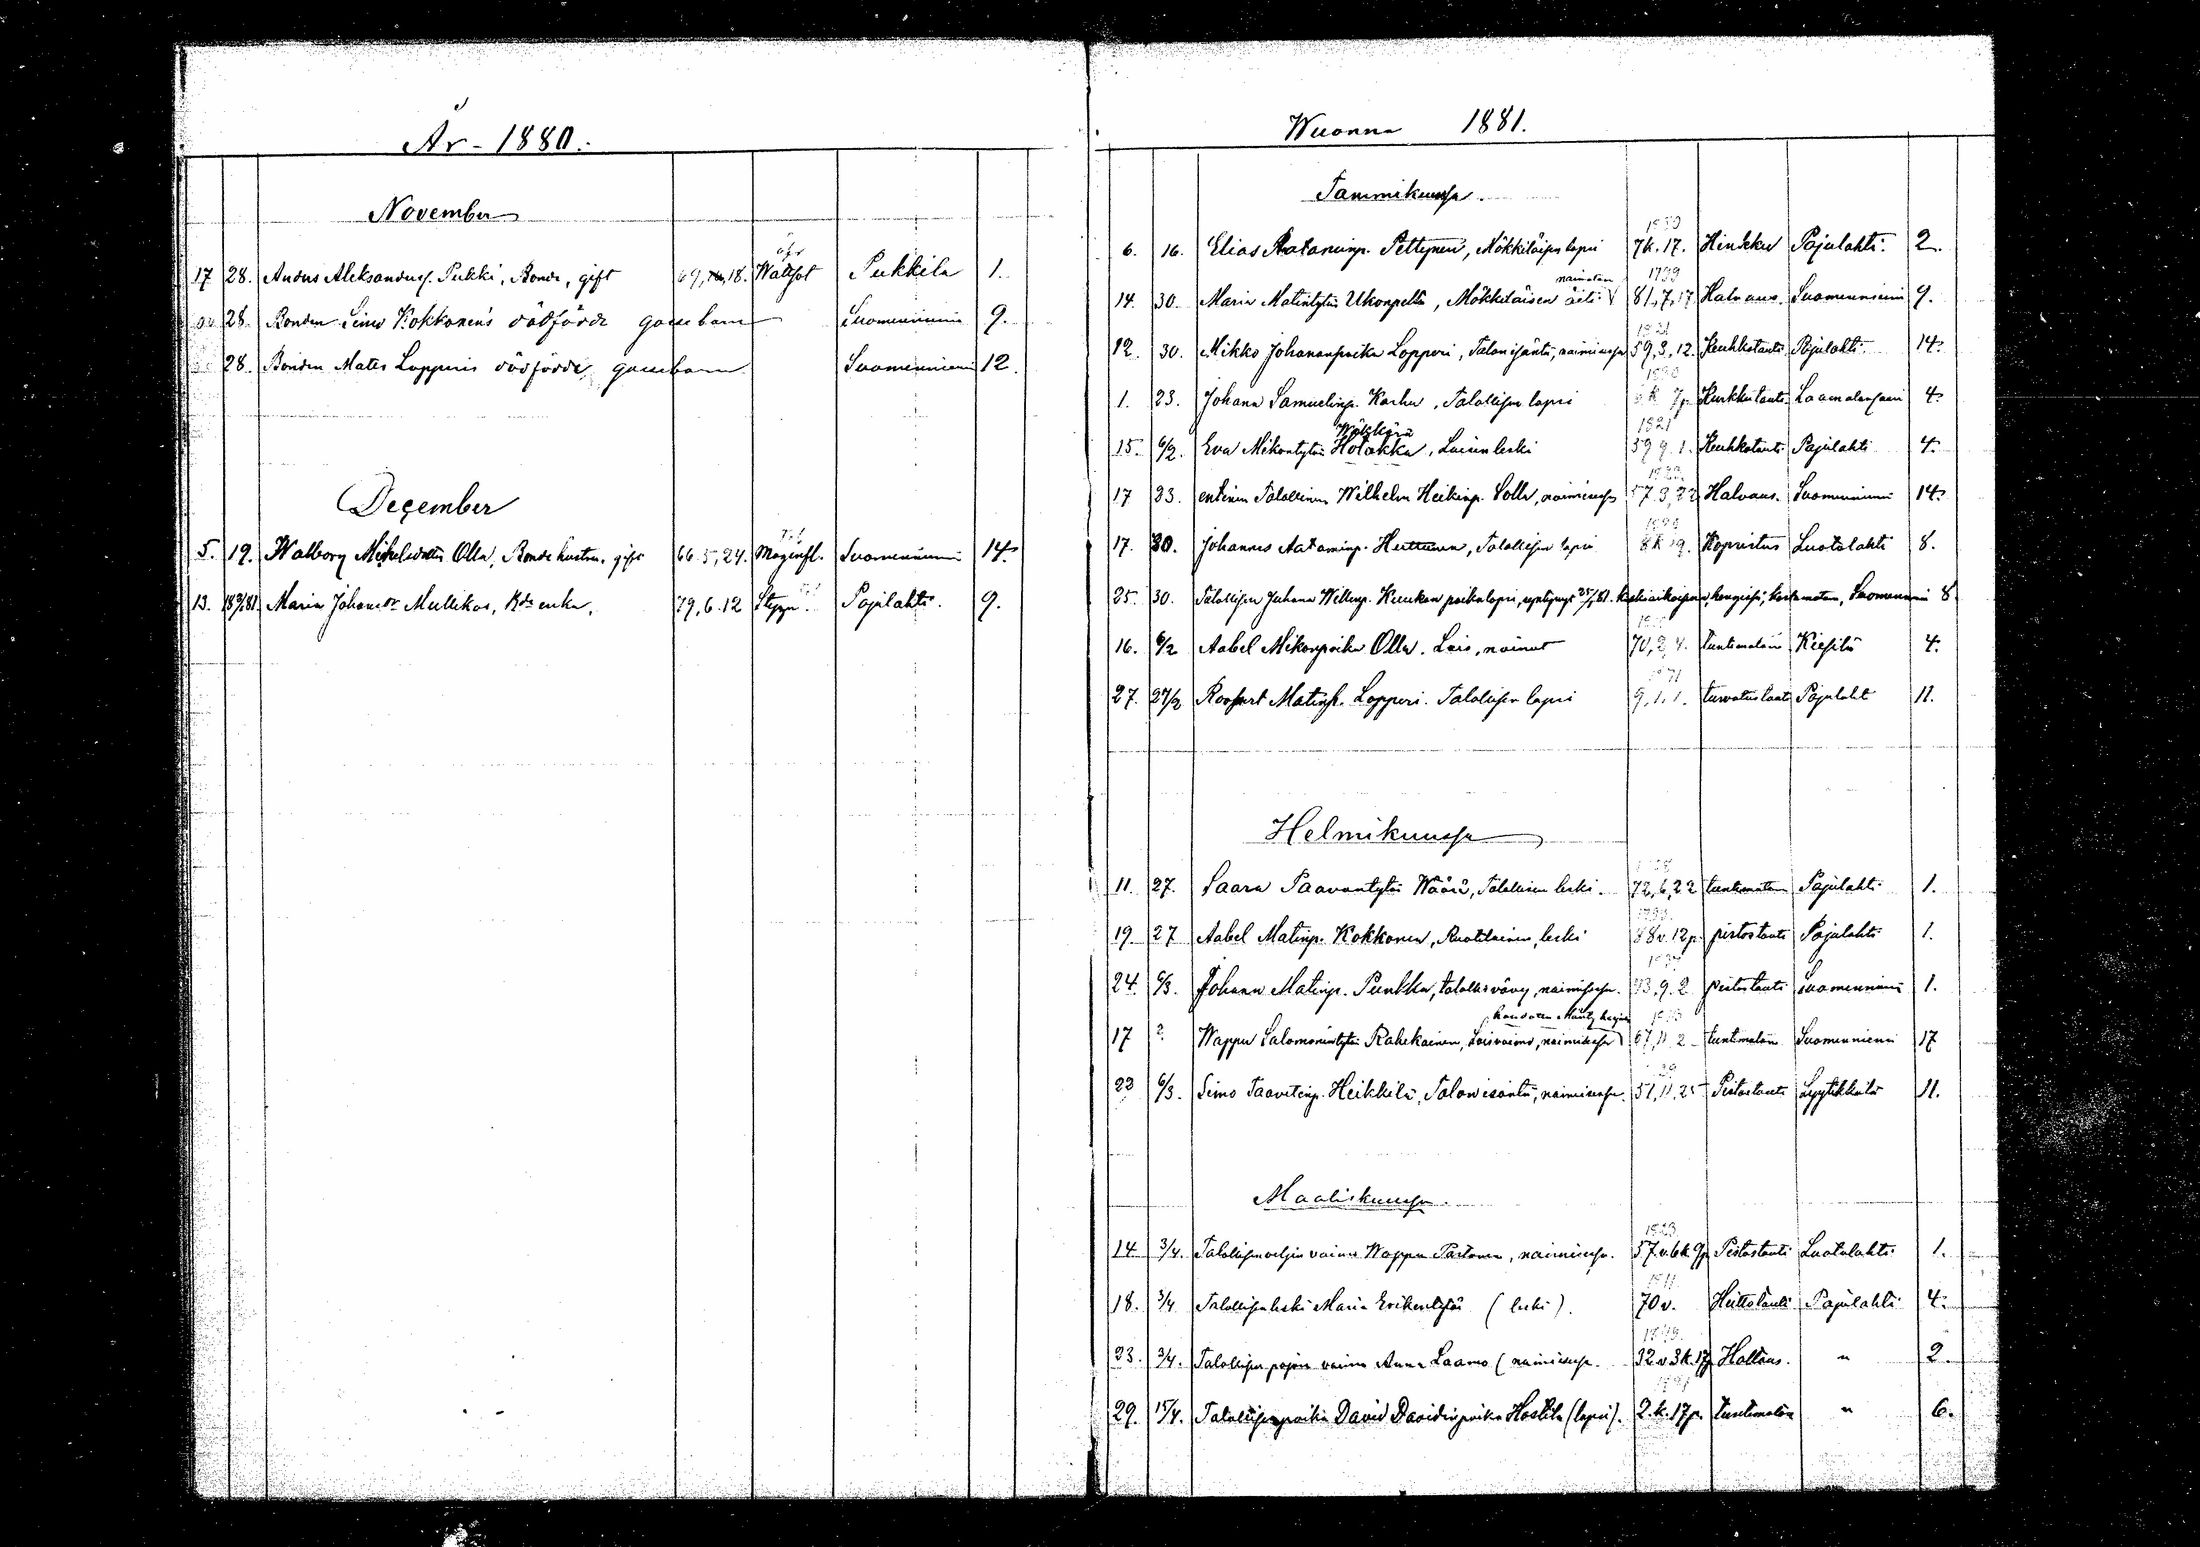 År - 1880.
November
17 28. Anders Aleksandersf. Pukki, Bonde, gift 69, 18. Wattsot Pukkila 1.
28. Bonden Simo Kokkonen's dödfödde gossebarn Suomenniemi 9.
28. Bonden Mats Lopperis dödfödde gossebarn Suomenniemi 12.
December
5. 19. Walborg Mickelsdotter Olla, Bondehustru, gift 66.5,24. Maginfl. Suomenniemi 14.
13. Maria Johansdr Mullikas, enka, 79,6.12 Pajulahti. 9.
Wuonna 1881.
Tammikuussa.
6. 16. Elias Aataminp. Pettynen, Mökkiläisen lapsi 7k.17. Hinkku Pajulahti. 2.
naimaton 1799
14. 30. Maria Matintytär Ukonpelto, Mökkiläisen äiti 81,7,17 Halvaus. Suomenniemi 9.
12. 30. Mikko Johananpoika Lopperi, Talon isäntä, naimisissa 59,3,12. Keuhkotauti Pajulahti. 14.
1. 23. Johana Samuelinp. Karhu, Talollisen lapsi 7p. Kurkkutauti 4.
1821
15. 6/2. Eva Mikontytär Hotakka, Loisen leski 59 9 1. Keuhkotauti Pajulahti 4.
17 23. entinen Talollinen Wilhelm Heikinp. Solla, naimisissa 57.3,22 Halvaus. Suomenniemi 14.
17. 30. Johannes Aataminp. Huttunen, Talollisen lapsi 8k 19. Kopristus Luotolahti 8.
25. 30. Talollisen Juhana Willenp. Kuukan poikalapsi, syntynyt 25/1 81. kastamaton, Suomenniemi 8.
16. 6/2 Aabel Mikonpoika Olla. Lois, nainut 70,2,4. tuntematoin Kiesilä 4.
27. 27/2 Roopert Matinp. Lopperi. Talollisen lapsi 9,1.1. turvotustauti Pajulaht 11.
Helmikuussa
11. 27. Saara Paavontytär Wäärä, Talollisen leski. 72,6,22 tuntematoin Pajulahti 1.
19. 27 Aabel Matinp. Kokkonen, Ruotilainen, leski 88v.12p. pistostauti Pajulahti 1.
24. 6/3. Johana Matinp. Punkka, talollis vävy, naimisissa. 43,9.2 pistostauti Suomenniemi 1.
17 ? Wappu Salomonintytär Rahikainen, Loisvaimo, naimisissa 67,11 2 tuntematoin Suomenniemi 17
23 6/3. Simo Taavetinp. Heikkilä, Talon isäntä, naimisissa. 51,11,25 Pistostauti Lyytikkälä 11.
Maaliskuussa.
1823
14 3/4. Talollisen veljen vaimo Wappu Partanen, naimisissa. 57.v.6k.9p Pistostauti Luotolahti 1.
1811
18. 3/4 Talollisen leski Maria Erikintytär (leski). 70v. Pajulahti 4.
23. 3/4. Talollisen pojan vaimo Anna Laamo (naimisissa. 32v 3k.17p Haltaus. " 2.
29. 15/4. Talollisenpoika David Davidinpoika Hostila (lapsi). 2.k.17p. tuntematon " 6.